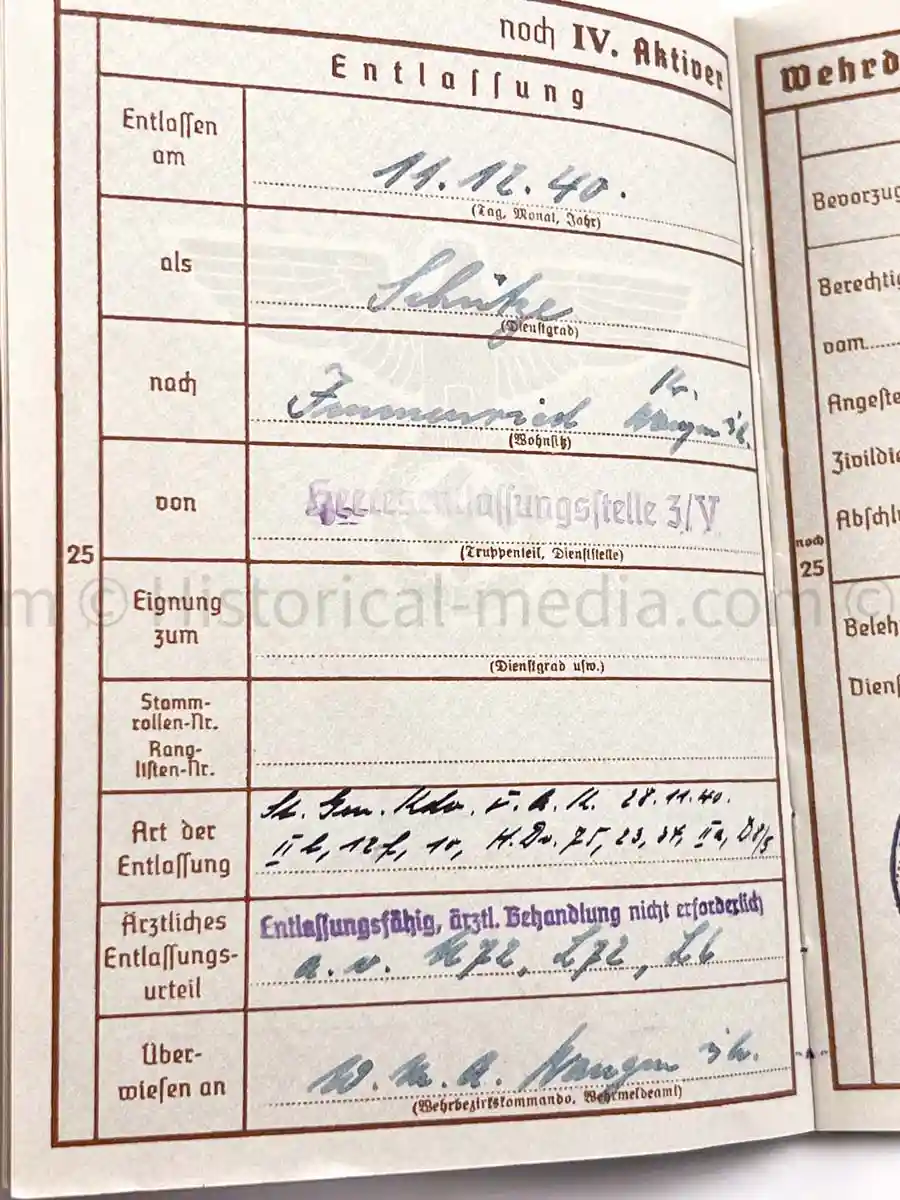 noch IV. Aktiver
Entlassung
Entlassen am
11.12.40.
(Tag, Monat, Jahr)
als
Schütze
(Dienstgrad)
nach
Immenried Kr. Wangen i/A.
(Wohnsitz)
von
Heeresentlassungsstelle 3/V
(Truppenteil, Dienststelle)
25
Eignung zum
(Dienstgrad usw.)
Stamm-
rollen-Nr.
Rang-
listen-Nr.
Art der Entlassung
Gen. Kdo. V. A. K. 28.11.40.
II b, 12 f, 10, H.Dv. 75, 23, 34, II a,
Ärztliches
Entlassungs-
urteil
Entlassungsfähig, ärztl. Behandlung nicht erforderlich
a. v. L72, L6
Über-
wiesen an
W. M. A. Wangen i/A.
(Wehrbezirkskommando, Wehrmeldeamt)
Wehrd
Bevorzug
Berechtig
vom
Angeste
Zivildie
Abschl
noch
25
Beleh
Diens
© Historical-media.com ©